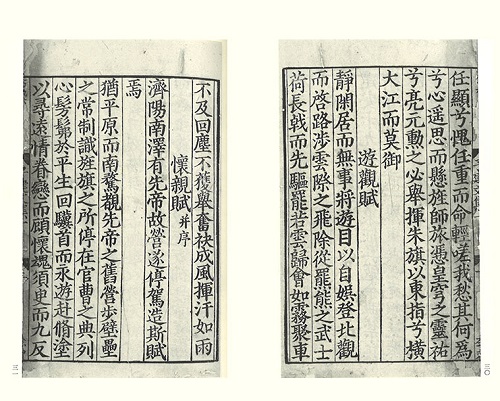 任顯兮愧任重而命輕嗟我愁其何爲
兮心遥思而懸旌師旅憑皇穹之靈祐
兮亮元勲之必舉揮朱旗以東指兮橫
大江而莫御
遊觀賦
靜閑居而無事將遊目以自娯登北觀
而啓路涉雲際之飛除從羆熊之武士
荷長戟而先驅罷若雲歸會如霧聚車
三〇
不及回塵不獲舉奮袂成風揮汗如雨
懷親賦 并序
濟陽南澤有先帝故營遂停駕造斯賦
焉
猶平原而南騖觀先帝之舊營步壁壘
之常制識旌旗之所停在官曹之典列
心髣髴於平生回驥首而永遊赴脩塗
以尋遠情眷戀而顧懷魂須臾而九反
三一